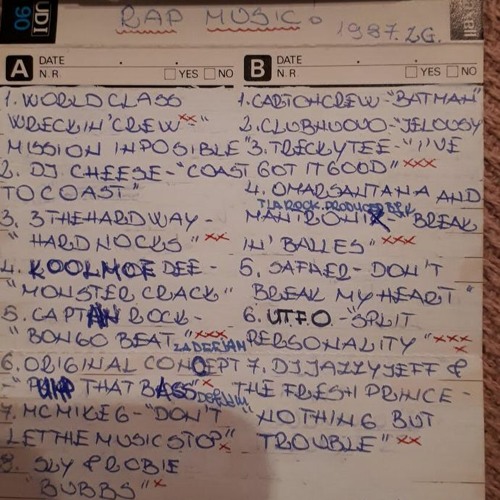 UDI 90
RAP MUSIC.
1987. ZG.
A
DATE
N.R. YES NO
1. WORLD CLASS
WRECKIN' CREW xx - "
MISSION IN POSIBLE"
2. DJ. CHEESE - "COAST
TO COAST"
3. 3THEHARDWAY -
"HARD NOCKS" xx
4. KOOLMOE DEE -
"MONSTER CRACK"
5. CAPTAN ROCK -
"BONGO BEAT" xxx
ZA DEEJAM
6. ORIGINAL CONCEPT
- "PUMP THAT BASS" x
DEFJAM
7. MC MIKE G - "DON'T
LET THE MUSIC STOP" x
8. SLY & ROBIE
"BUBBS" x
B
DATE
N.R. YES NO
1. CARTONCREW - "BATMAN"
2. CLUBNUOVO - "JELOUSY"
3. TRECKYTEE - "I'VE
GOT IT GOOD" xxx
4. OMARSANTANA AND
T LA ROCK. PRODUCED BY
MANTRONIX - "BREAK
IN' BALLES" xxx
5. SAFNER - DON'T
BREAK MY HEART"
6. U.T.F.O. - "SPLIT
PERSONALITY" xxx
x
7. DJ JAZZY JEFF &
THE FRESH PRINCE -
"NOTHING BUT
TROUBLE" xx